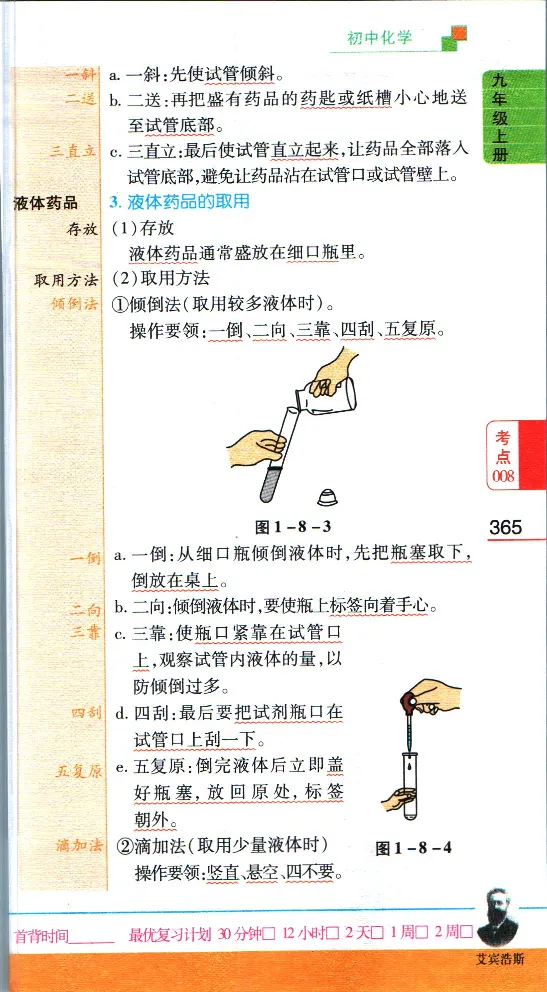 初中化学
九年级上册
一斜 a. 一斜:先使试管倾斜。
二送 b. 二送:再把盛有药品的药匙或纸槽小心地送
至试管底部。
三直立 c. 三直立:最后使试管直立起来,让药品全部落入
试管底部,避免让药品沾在试管口或试管壁上。
液体药品 3. 液体药品的取用
存放 (1)存放
液体药品通常盛放在细口瓶里。
取用方法 (2)取用方法
倾倒法 ①倾倒法(取用较多液体时)。
操作要领:一倒、二向、三靠、四刮、五复原。
考点
008
365
图1-8-3
一倒 a. 一倒:从细口瓶倾倒液体时,先把瓶塞取下,
倒放在桌上。
二向 b. 二向:倾倒液体时,要使瓶上标签向着手心。
三靠 c. 三靠:使瓶口紧靠在试管口
上,观察试管内液体的量,以
防倾倒过多。
四刮 d. 四刮:最后要把试剂瓶口在
试管口上刮一下。
五复原 e. 五复原:倒完液体后立即盖
好瓶塞,放回原处,标签
朝外。
滴加法 ②滴加法(取用少量液体时)
图1-8-4
操作要领:竖直、悬空、四不要。
首背时间______ 最优复习计划 30分钟□ 12小时□ 2天□ 1周□ 2周□
艾宾浩斯